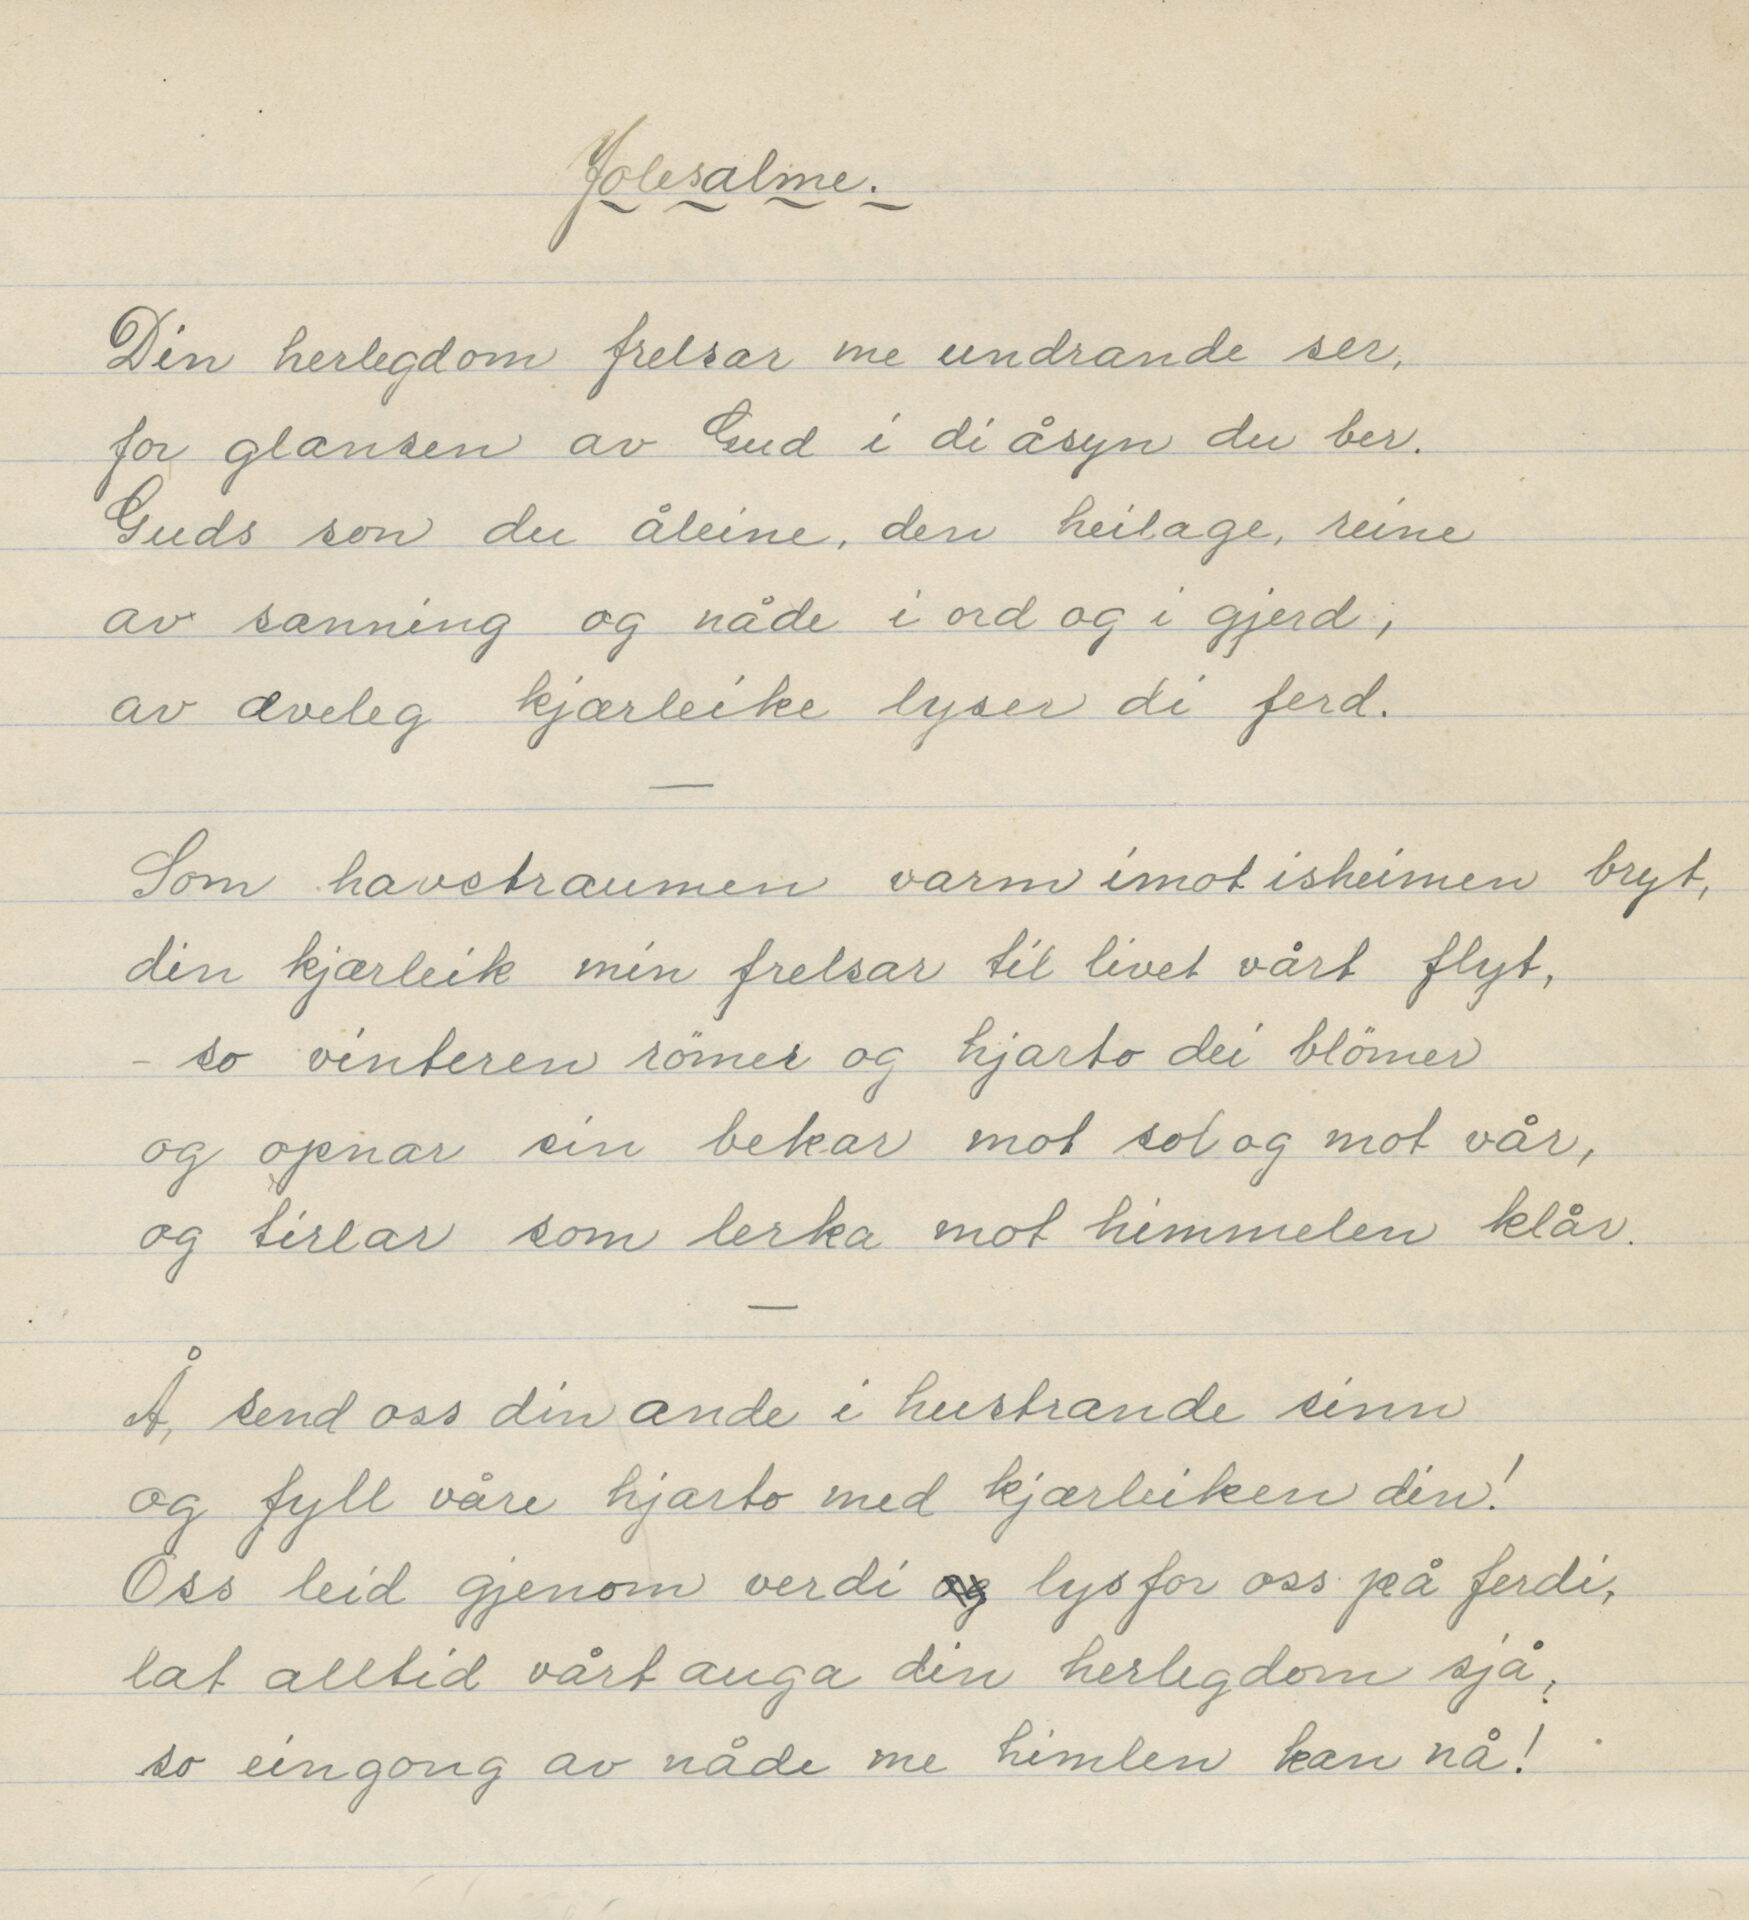 Jolesalme.
Din herlegdom frelsar me undrande ser,
for glansen av Gud i di åsyn du ber.
Guds son du åleine, den heilage, reine
av sanning og nåde i ord og i gjerd,
av æveleg kjærleike lyser di ferd.
—
Som havstraumen varm imot isheimen bryt,
din kjærleik min frelsar til livet vårt flyt,
- so vinteren römer og hjarto dei blömer
og opnar sin bekar mot sol og mot vår,
og tirlar som lerka mot himmelen klår.
—
Å, send oss din ande i hustrande sinn
og fyll våre hjarto med kjærleiken din!
Oss leid gjenom verdi og lys for oss på ferdi,
lat alltid vårt auga din herlegdom sjå,
so eingong av nåde me himlen kan nå!